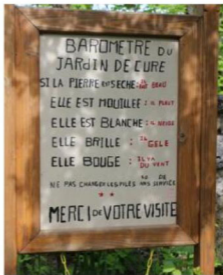 BAROMETRE DU
JARDIN DE CURE
SI LA PIERRE EST SECHE: IL FAIT BEAU
ELLE EST MOUILLEE: IL PLEUT
ELLE EST BLANCHE: IL NEIGE
ELLE BRILLE : IL GELE
ELLE BOUGE : IL Y A DU VENT
NE PAS CHANGER LES PILES PAS SERVICE
MERCI DE VOTRE VISITE